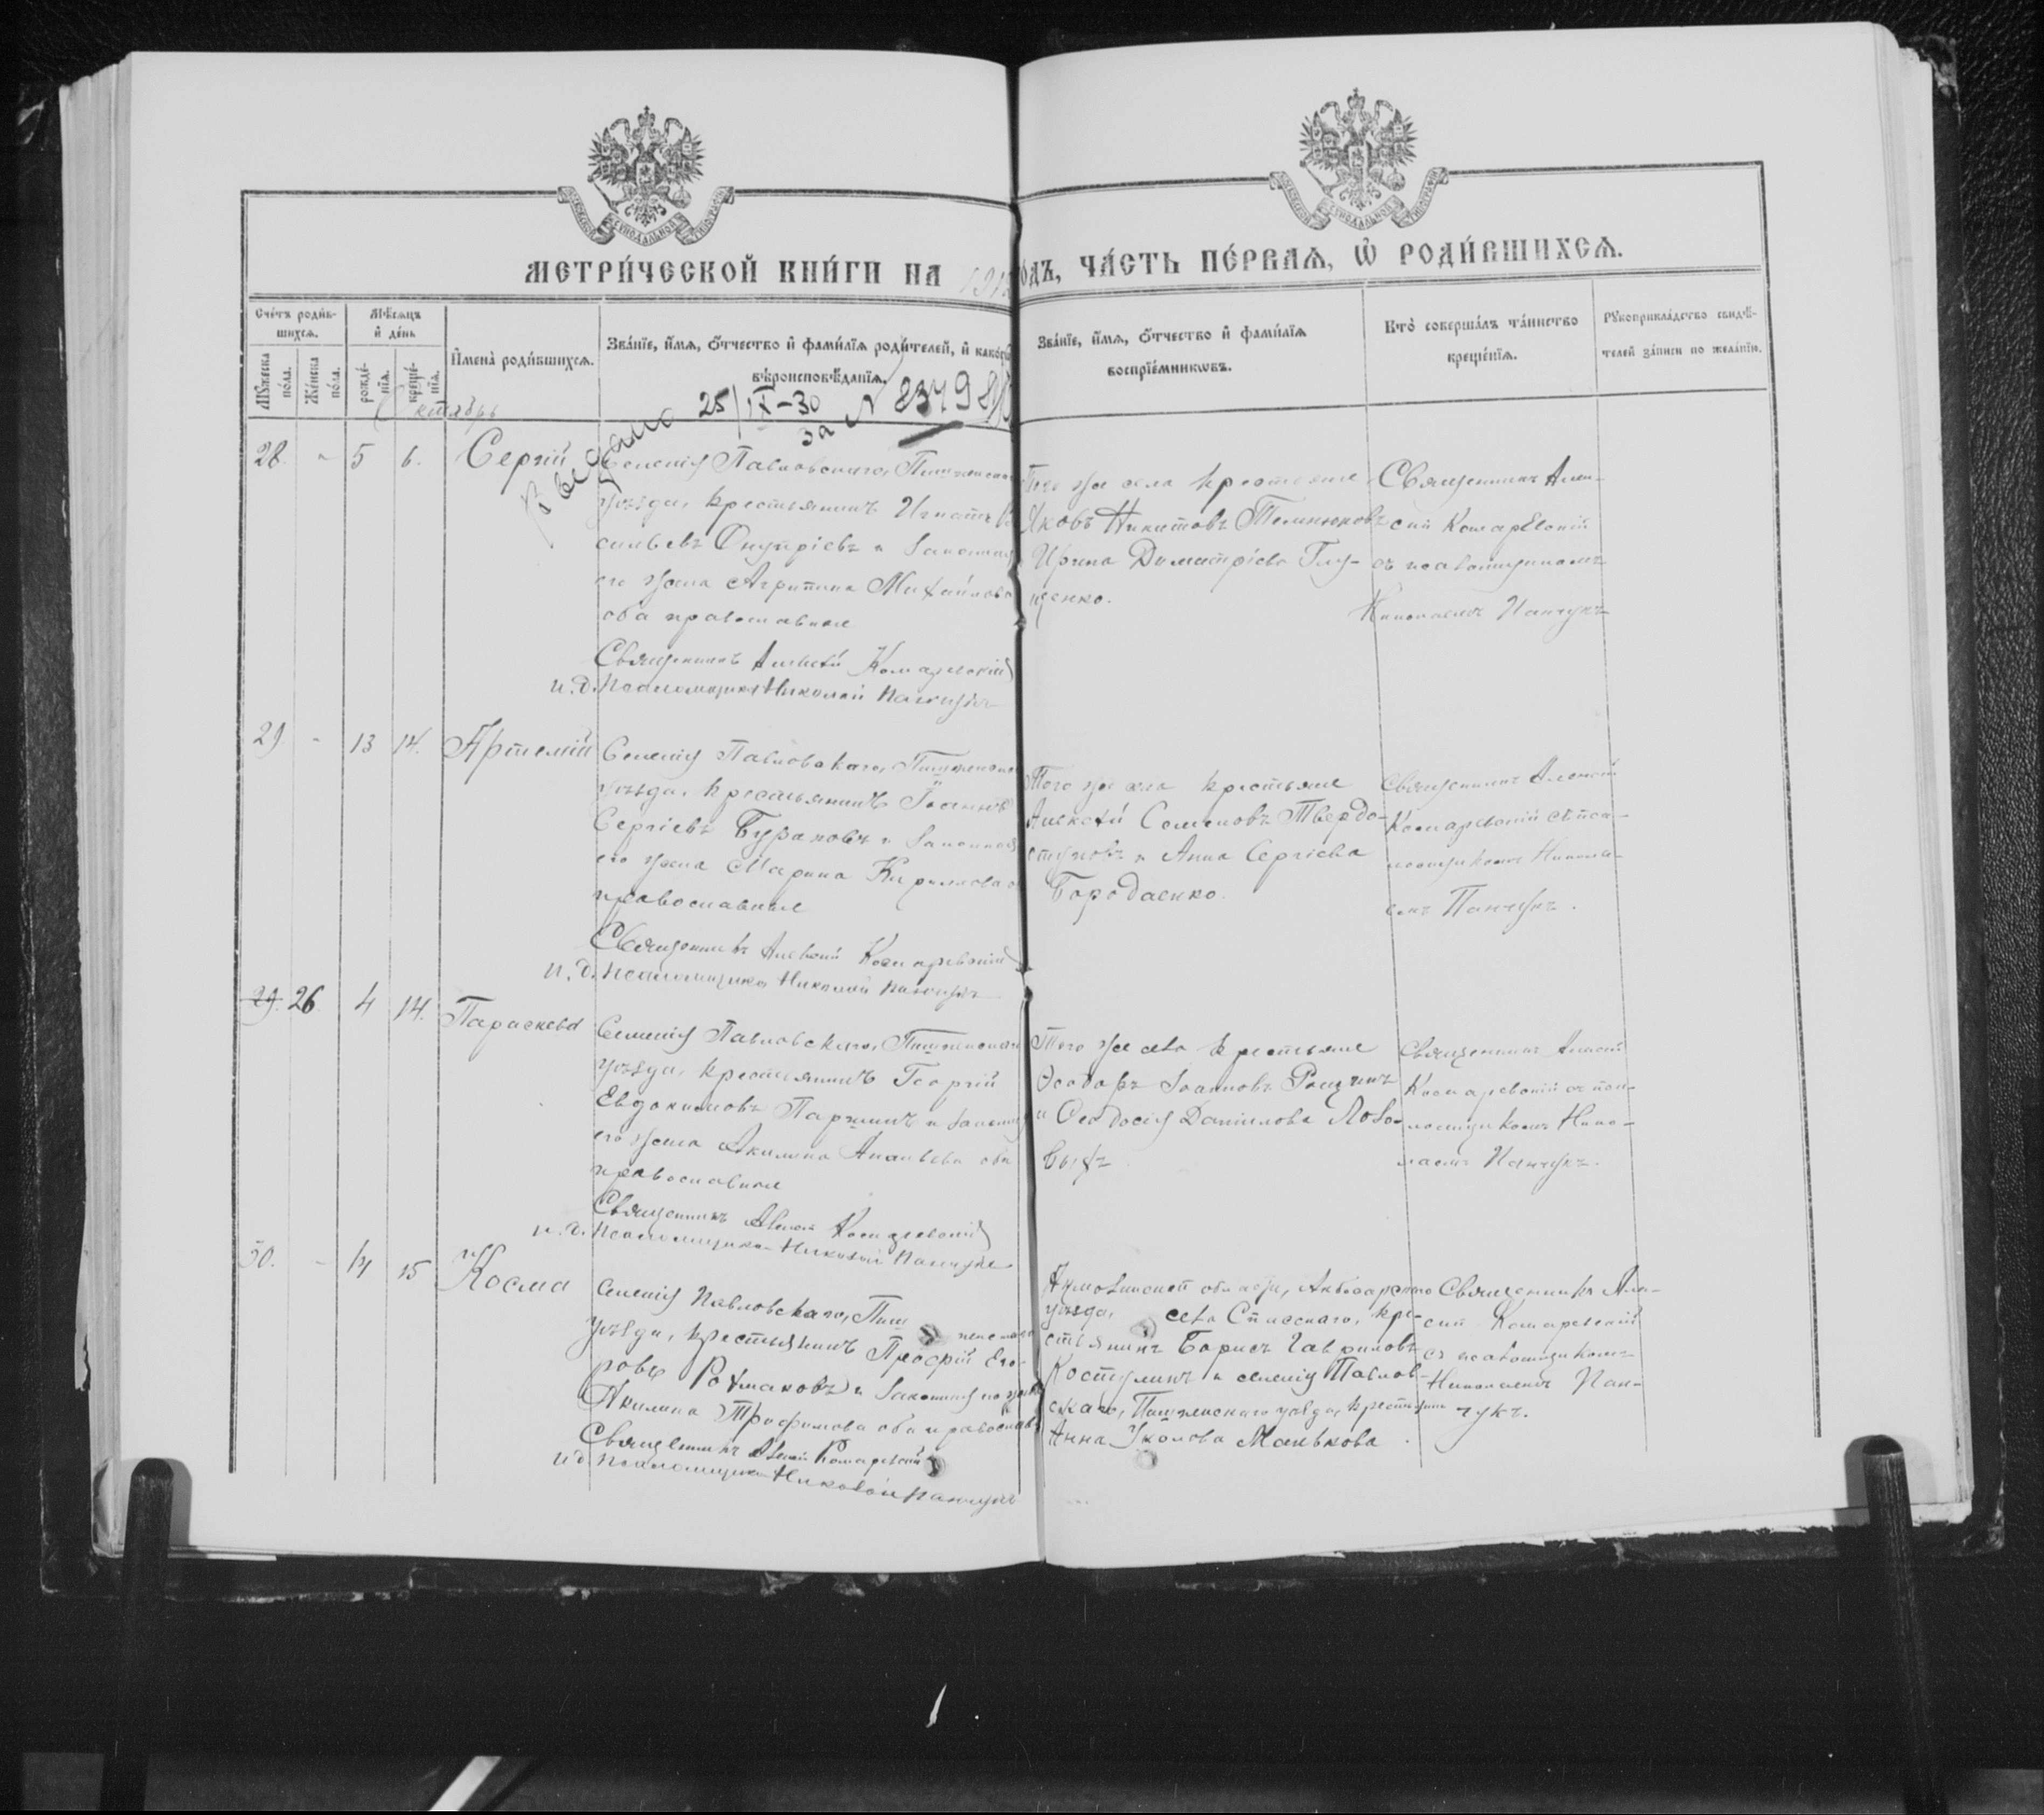 МЕТРИ́ЧЕСКОЙ КНИ́ГИ НА 191 О́ДЪ, ЧА́СТЬ ПЕ́РВАѦ, Ѽ РОДИ́ВШИХСѦ.
Сче́тъ роди́в-
шихсѧ.
Мꙋ́жеска по́ла.
Же́нска по́ла.
Мѣ́сѧцъ и҆ де́нь
рожде́-
нїѧ.
креще́-
нїѧ.
И҆мена̀ роди́вшихсѧ.
Зва́нїе, и҆́мѧ, ѻ҆́тчество и҆ фами́лїѧ роди́телей, и҆ како́гѡ
вѣроисповѣ́данїѧ.
Зва́нїе, и҆́мѧ, ѻ҆́тчество и҆ фами́лїѧ
воспрїе́мникѡвъ.
Кто̀ соверша́лъ та́инство
креще́нїѧ.
Рꙋкоприкла́дство свидѣ́-
телей за́писи по жела́нїю.
Октябрь
Выдано 25/IX-30
за N 83498
28. - 5 6. Сергій
Селенія Павловскаго,
уѣзда, крестьянинъ Игнатъ Ва-
сильевъ Онуприевъ и законная
его жена Агрипина Михайлова
оба православные
Священникъ Алексѣй Комаревскій
и.д. Псаломщика Николай Панчукъ
Того же села крестьяне
Яковъ Никитовъ
Ирина Димитріева Глу-
щенко.
Священникъ Алек-
сѣй Комаревскій
съ псаломщикомъ
Николаемъ Панчукъ
29. - 13 14. Артемій
Селенія Павловскаго,
уѣзда, крестьянинъ Іоаннъ
Сергіевъ Бураковъ и законная
его жена Марина Кирилова
православные
Священникъ Алексѣй Комаревскій
и.д. Псаломщика Николай Панчукъ
Того же села крестьяне
Алексѣй Семеновъ Твердо-
и Анна Сергіева
Бородаенко.
Священникъ Алексѣй
Комаревскій съ пса-
ломщикомъ Никола-
емъ Панчукъ.
29. 26 4 14. Параскева
Селенія Павловскаго,
уѣзда, крестьянинъ Георгій
Евдокимовъ и законная
его жена Акилина Ананьева оба
православные
Священникъ Алексѣй Комаревскій
и.д. Псаломщика Николай Панчукъ
Того же села крестьяне
Ѳеодоръ Іоанновъ Рощинъ
и Ѳеодосія Даніилова Лобо-
выхъ
Священникъ Алексѣй
Комаревскій съ псал-
омщикомъ Нико-
лаемъ Панчукъ.
30. - 14 15 Косма
Селенія Павловскаго,
уѣзда, крестьянинъ Его-
ровъ и законная его жена
Акилина Трофимова оба православные
Священникъ Алексѣй Комаревскій
и.д. Псаломщика Николай Панчукъ
Акмолинской области, Акбасарскаго
уѣзда, села Спасскаго, кре-
стьянинъ Борисъ Гавриловъ
и селенія Павлов-
скаго, уѣзда, крестьянка
Анна Манькова.
Священникъ Але-
ксѣй Комаревскій
съ псаломщикомъ
Николаемъ Пан-
чукъ.